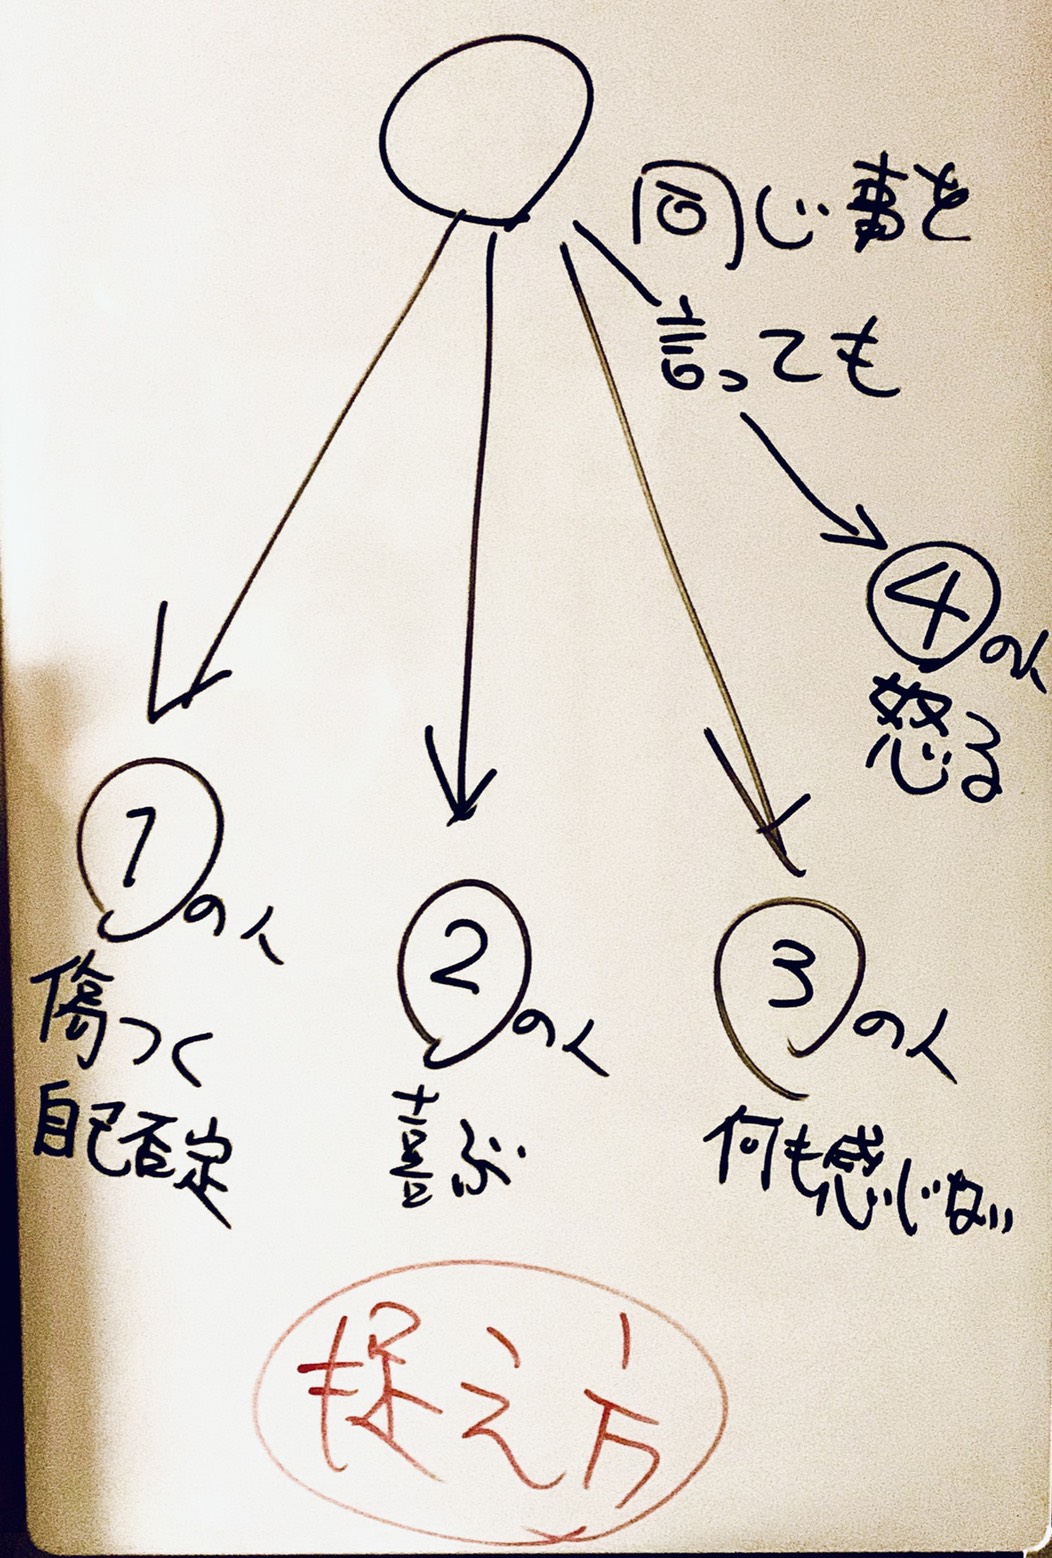 同じ事を
言っても
④の人
怒る
①の人
傷つく
自己否定
②の人
喜ぶ
③の人
何も感じない
捉え方